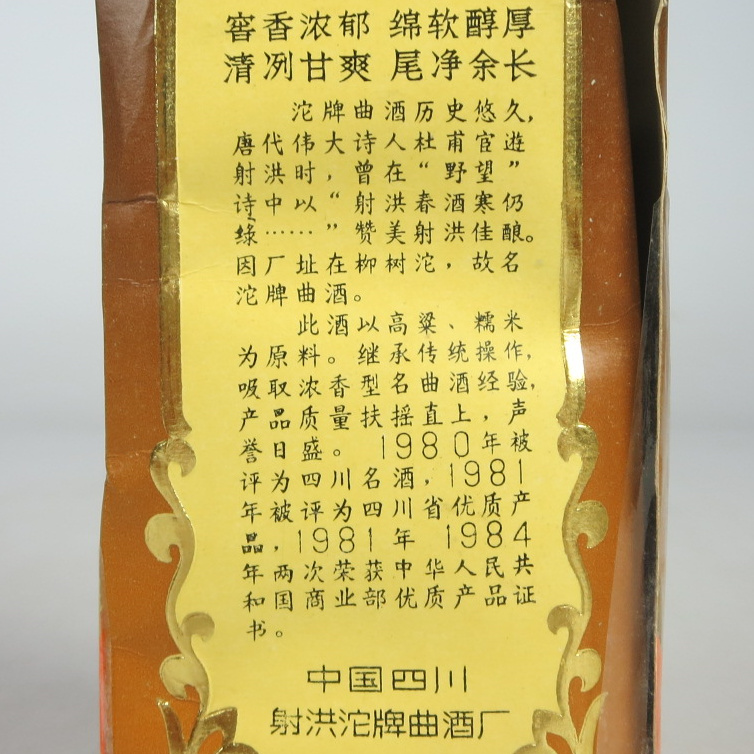 窖香浓郁 绵软醇厚
清冽甘爽 尾净余长
沱牌曲酒历史悠久,
唐代伟大诗人杜甫宦遊
射洪时,曾在“野望”
诗中以“射洪春酒寒仍
绿……”赞美射洪佳酿。
因厂址在柳树沱,故名
沱牌曲酒。
此酒以高粱、糯米
为原料。继承传统操作,
吸取浓香型名曲酒经验,
产品质量扶摇直上,声
誉日盛。1980年被
评为四川名酒,1981
年被评为四川省优质产
品,1981年 1984
年两次荣获中华人民共
和国商业部优质产品证
书。
中国四川
射洪沱牌曲酒厂